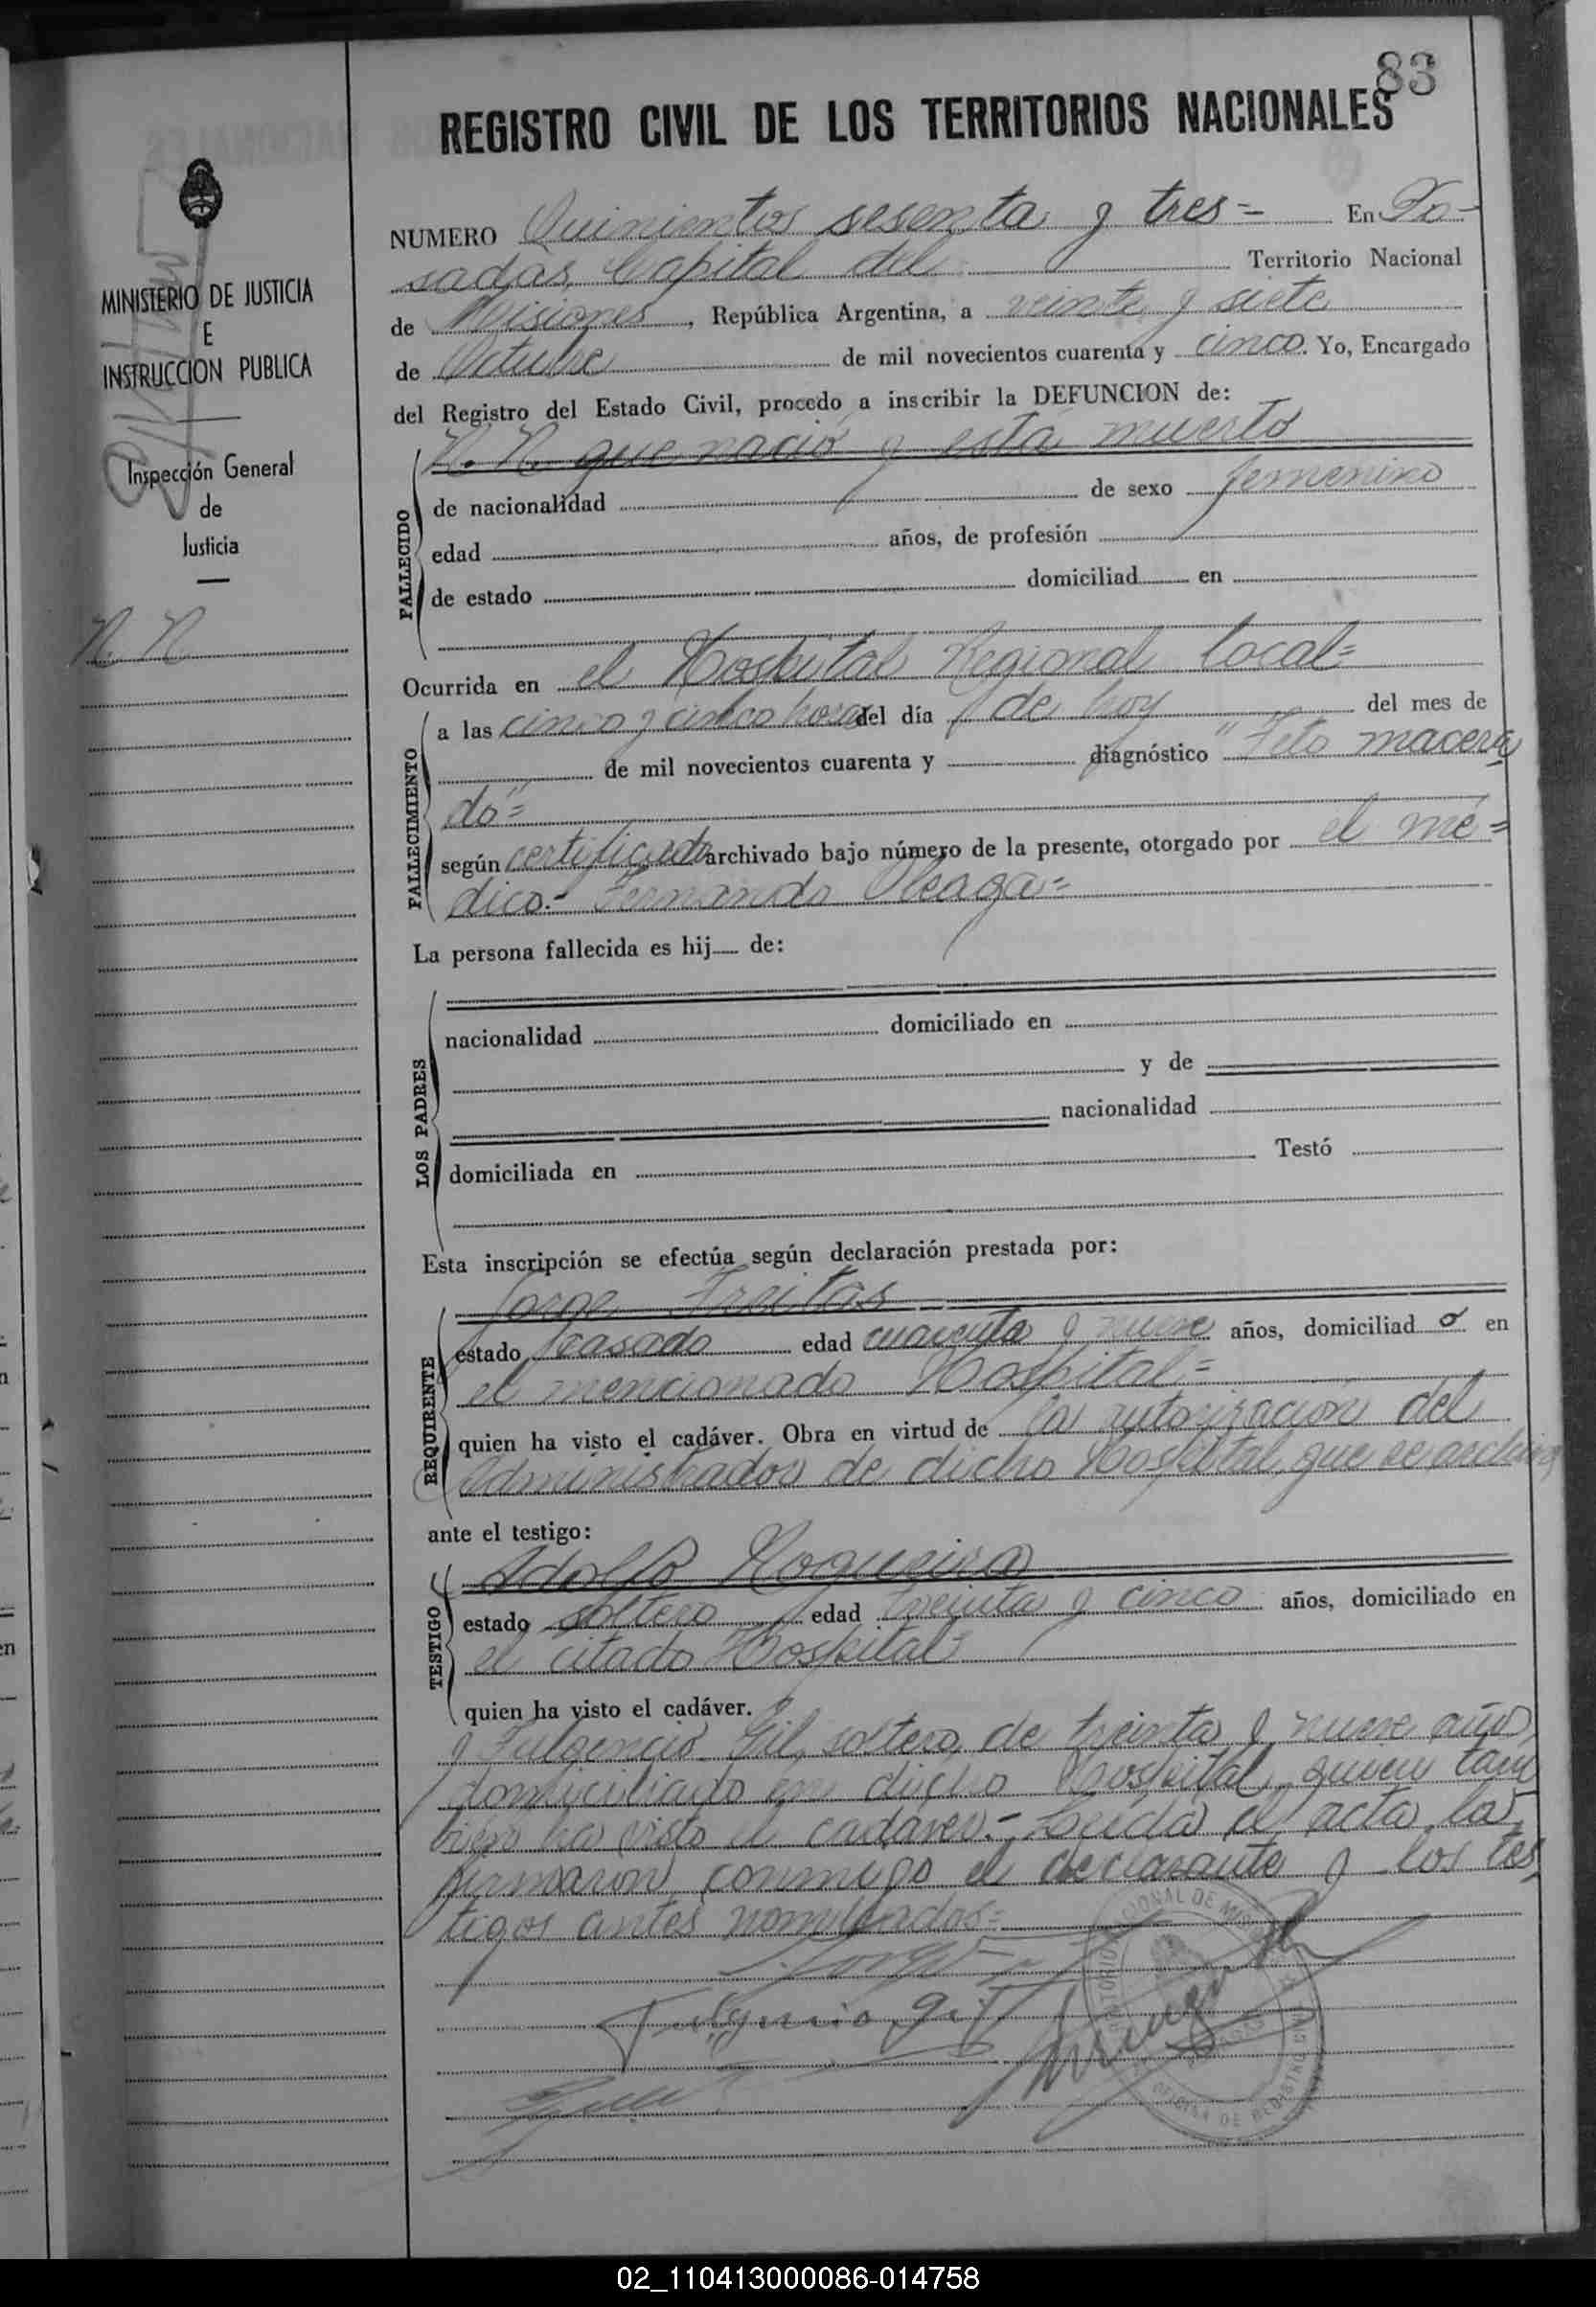 83
REGISTRO CIVIL DE LOS TERRITORIOS NACIONALES
MINISTERIO DE JUSTICIA
E
INSTRUCCION PUBLICA
Inspección General
de
Justicia
N. N.
NUMERO Quinientos sesenta y tres= En Po-
sadas, Capital del Territorio Nacional
de Misiones, República Argentina, a veinte y siete
de Octubre de mil novecientos cuarenta y cinco. Yo, Encargado
del Registro del Estado Civil, procedo a inscribir la DEFUNCION de:
N. N. que nació y está muerto
FALLECIDO
de nacionalidad de sexo femenino
edad años, de profesión
de estado domiciliad en
Ocurrida en el Hospital Regional local=
FALLECIMIENTO
a las cinco y cinco horas del día de hoy del mes de
de mil novecientos cuarenta y diagnóstico "Feto macera
do"=
según certificado archivado bajo número de la presente, otorgado por el mé=
dico.- Fernando Oleaga=
La persona fallecida es hij de:
LOS PADRES
nacionalidad domiciliado en
y de
nacionalidad
domiciliada en Testó
Esta inscripción se efectúa según declaración prestada por:
REQUIRENTE
Jorge Freitas
estado casado edad cuarenta y nueve años, domiciliad o en
el mencionado Hospital=
quien ha visto el cadáver. Obra en virtud de la autorización del
Administrador de dicho Hospital, que se archiva
ante el testigo:
TESTIGO
Adolfo Nogueira
estado soltero edad treinta y cinco años, domiciliado en
el citado Hospital=
quien ha visto el cadáver.
y Fulgencio Gil, soltero, de treinta y nueve años
domiciliado en dicho Hospital, quien tam
bién ha visto el cadáver.- Leída el acta la
firmaron conmigo el declarante y los tes
tigos antes nombrados=
Fulgencio Gil
OFICINA DE REGISTRO CIVIL
02_110413000086-014758